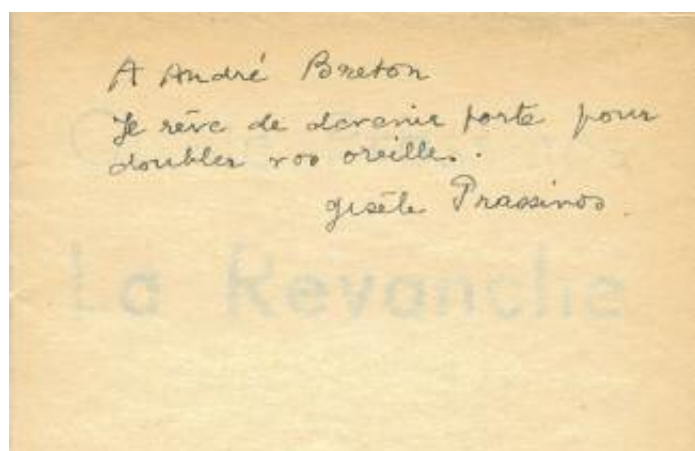 A André Breton
Je rêve de devenir porte pour
doubler vos oreilles.
gisèle Prassinos.
La Revanche